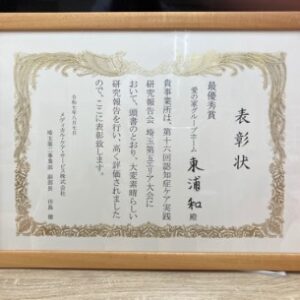 表彰状
最優秀賞
愛の家グループホーム 東浦和 殿
貴事業所は、第十六回認知症ケア実践
研究報告会 埼玉第五エリア大会に
おいて、頭書のとおり、大変素晴らしい
研究報告を行い、高く評価されました
ので、ここに表彰致します。
令和七年八月七日
メディカル・ケア・サービス株式会社
埼玉第三事業部 副部長